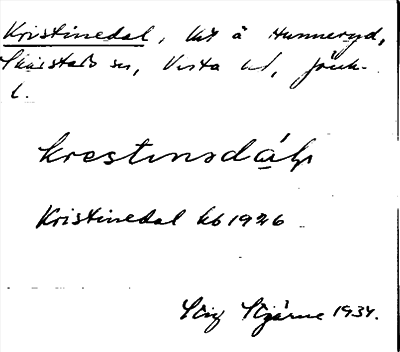 Kristinedal, lht å Hunneryd,
Skärstads sn, Vista hd, Jönk-
l.
krestinədálp
Kristinedal kb 1926
Stig Stjärne 1934.